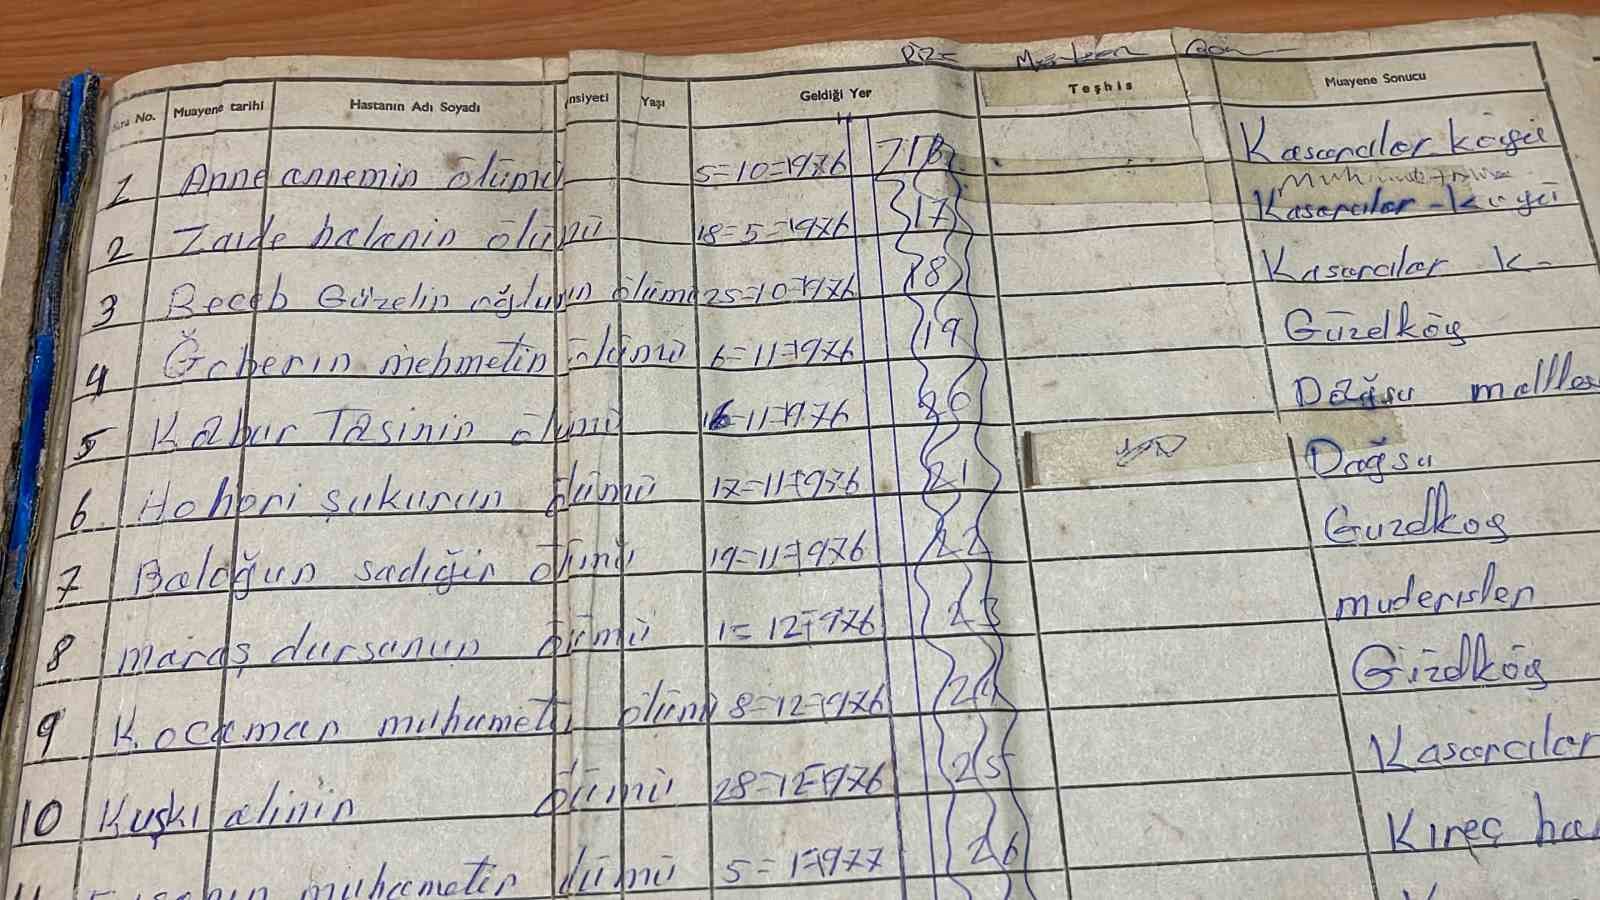 Sıra No. Muayene tarihi Hastanın Adı Soyadı nsiyeti Yaşı Geldiği Yer Teşhis Muayene Sonucu
1 Anne annemin ölümü 5=10=1976 Kasarcılar köyü
2 Zaide halanin ölümü 18=5=1976 17 Kasarcılar-köyü
3 Receb Güzelin oğlunun ölümü 25=10=1976 18 Kasarcılar K-
4 mehmetin ölümü 6=11=1976 19 Güzelköy
5 Kabur Tasinin ölümü 16=11=1976 20 Dağsu
6 Hohori şukurun ölümü 17=11=1976 21 Dağsu
7 Baloğun sadığin ölümü 19=11=1976 22 Guzelkoy
8 maraş dursunun ölümü 1=12=1976 23 muderısler
9 Kocaman muhameti ölümü 8=12=1976 24 Güzelköy
10 Kuşkı alinin ölümü 28=12=1976 25 Kasarcılar
muhametin ölümü 5=1=1977 26 Kıreç ha